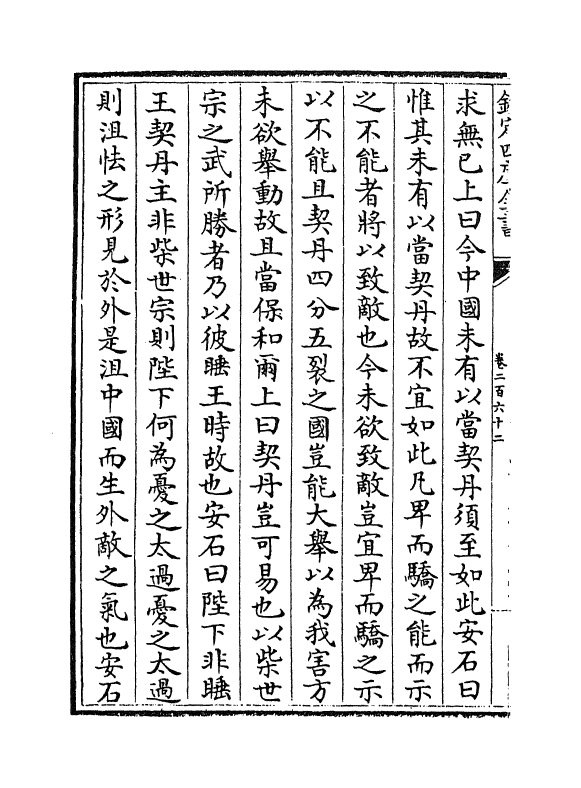 欽定四庫全書
卷二百六十二
求無已上曰今中國未有以當契丹須至如此安石曰
惟其未有以當契丹故不宜如此凡卑而驕之能而示
之不能者將以致敵也今未欲致敵豈宜卑而驕之示
以不能且契丹四分五裂之國豈能大舉以為我害方
未欲舉動故且當保和爾上曰契丹豈可易也以柴世
宗之武所勝者乃以彼睡王時故也安石曰陛下非睡
王契丹主非柴世宗則陛下何為憂之太過憂之太過
則沮怯之形見於外是沮中國而生外敵之氣也安石